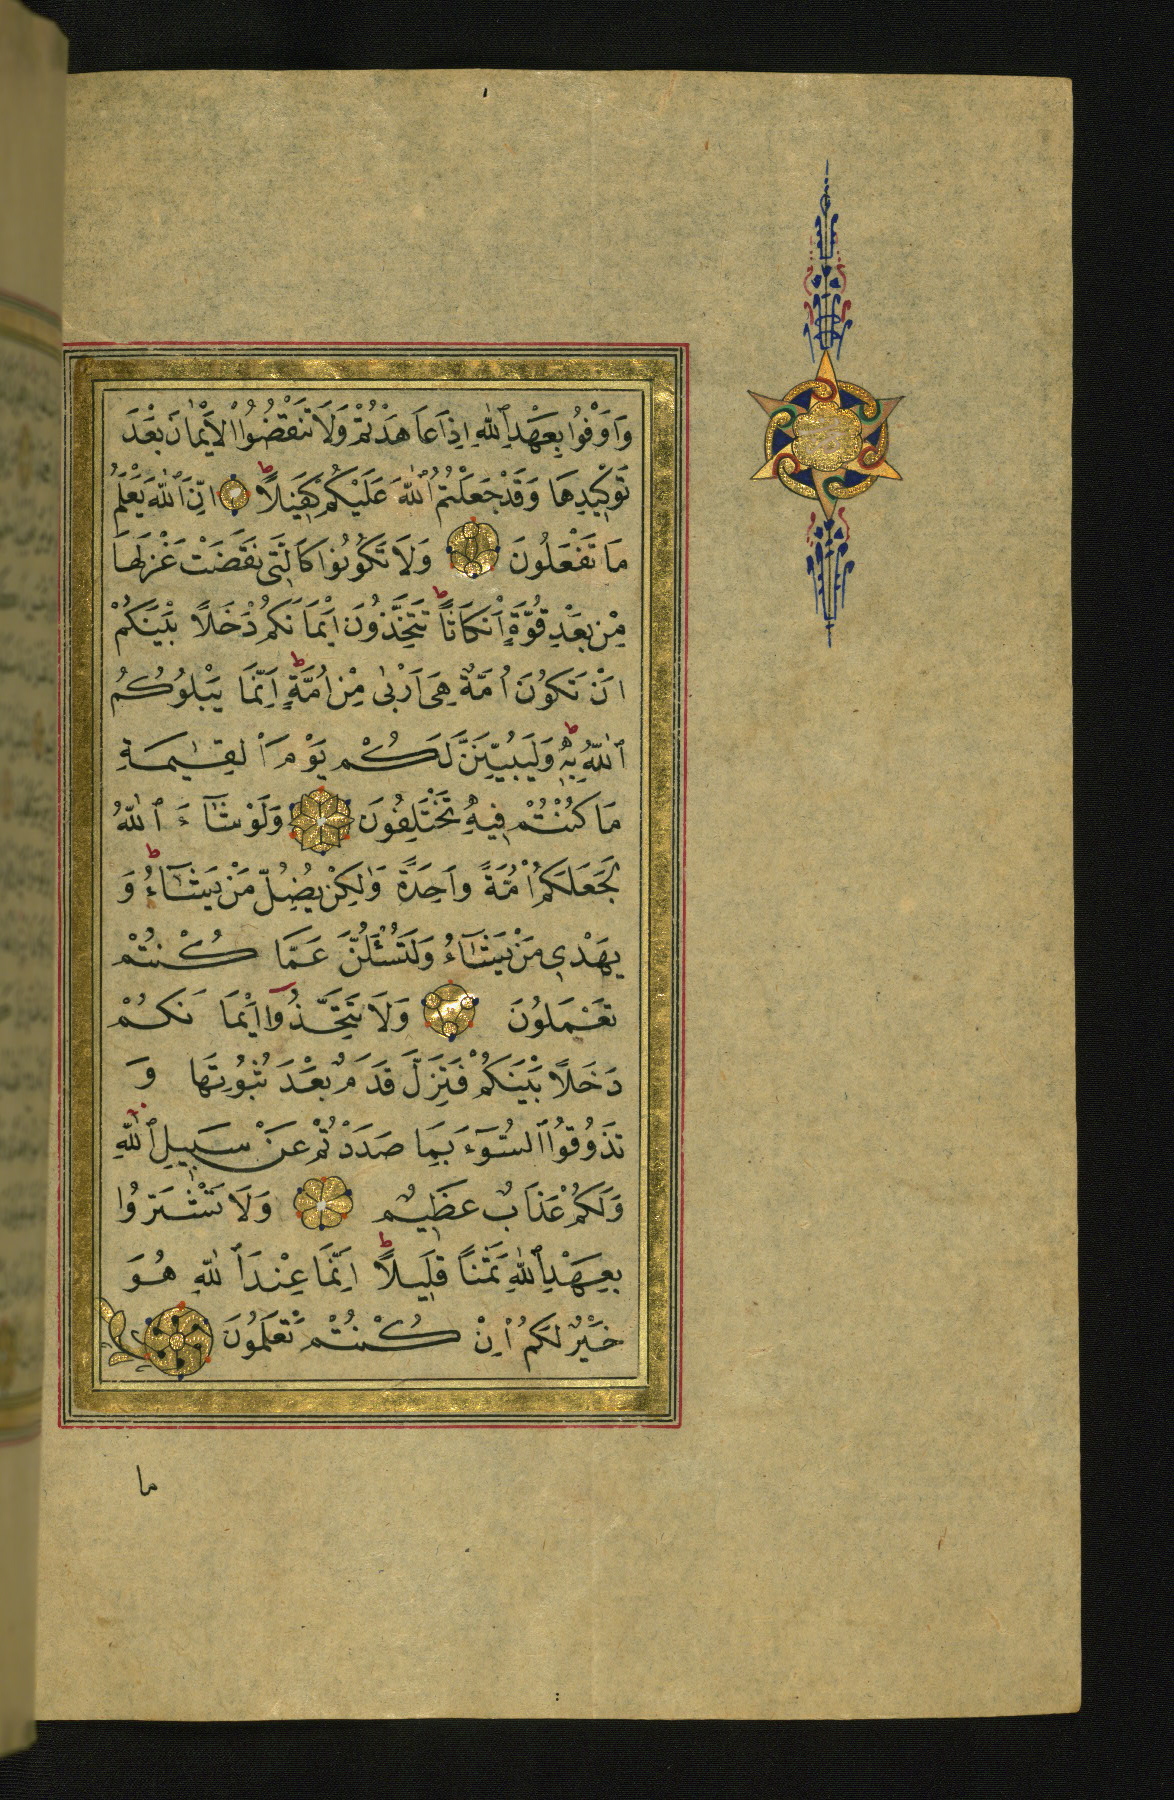 وَاَوْفُوا بِعَهْدِ ٱللّٰهِ اِذَا عَاهَدْتُمْ وَلَا تَنْقُضُوا الْاَيْمَانَ بَعْدَ
تَوْكِيدِهَا وَقَدْ جَعَلْتُمُ ٱللّٰهَ عَلَيْكُمْ كَفِيلًا ط اِنَّ ٱللّٰهَ يَعْلَمُ
مَا تَفْعَلُونَ وَلَا تَكُونُوا كَالَّتِى نَقَضَتْ غَزْلَهَا
مِنْ بَعْدِ قُوَّةٍ اَنْكَاثًا ط تَتَّخِذُونَ اَيْمَانَكُمْ دَخَلًا بَيْنَكُمْ
اَنْ تَكُونَ اُمَّةٌ هِىَ اَرْبٰى مِنْ اُمَّةٍ ط اِنَّمَا يَبْلُوكُمُ
ٱللّٰهُ بِهِ ط وَلَيُبَيِّنَنَّ لَكُمْ يَوْمَ الْقِيٰمَةِ
مَا كُنْتُمْ فِيهِ تَخْتَلِفُونَ وَلَوْ شَآءَ ٱللّٰهُ
لَجَعَلَكُمْ اُمَّةً وَاحِدَةً وَلٰكِنْ يُضِلُّ مَنْ يَشَآءُ ط وَ
يَهْدِى مَنْ يَشَآءُ وَلَتُسْئَلُنَّ عَمَّا كُنْتُمْ
تَعْمَلُونَ وَلَا تَتَّخِذُوٓا اَيْمَانَكُمْ
دَخَلًا بَيْنَكُمْ فَتَزِلَّ قَدَمٌ بَعْدَ ثُبُوتِهَا وَ
تَذُوقُوا السُّوٓءَ بِمَا صَدَدْتُمْ عَنْ سَبِيلِ ٱللّٰهِ
وَلَكُمْ عَذَابٌ عَظِيمٌ وَلَا تَشْتَرُوا
بِعَهْدِ ٱللّٰهِ ثَمَنًا قَلِيلًا ط اِنَّمَا عِنْدَ ٱللّٰهِ هُوَ
خَيْرٌ لَكُمْ اِنْ كُنْتُمْ تَعْلَمُونَ
ما